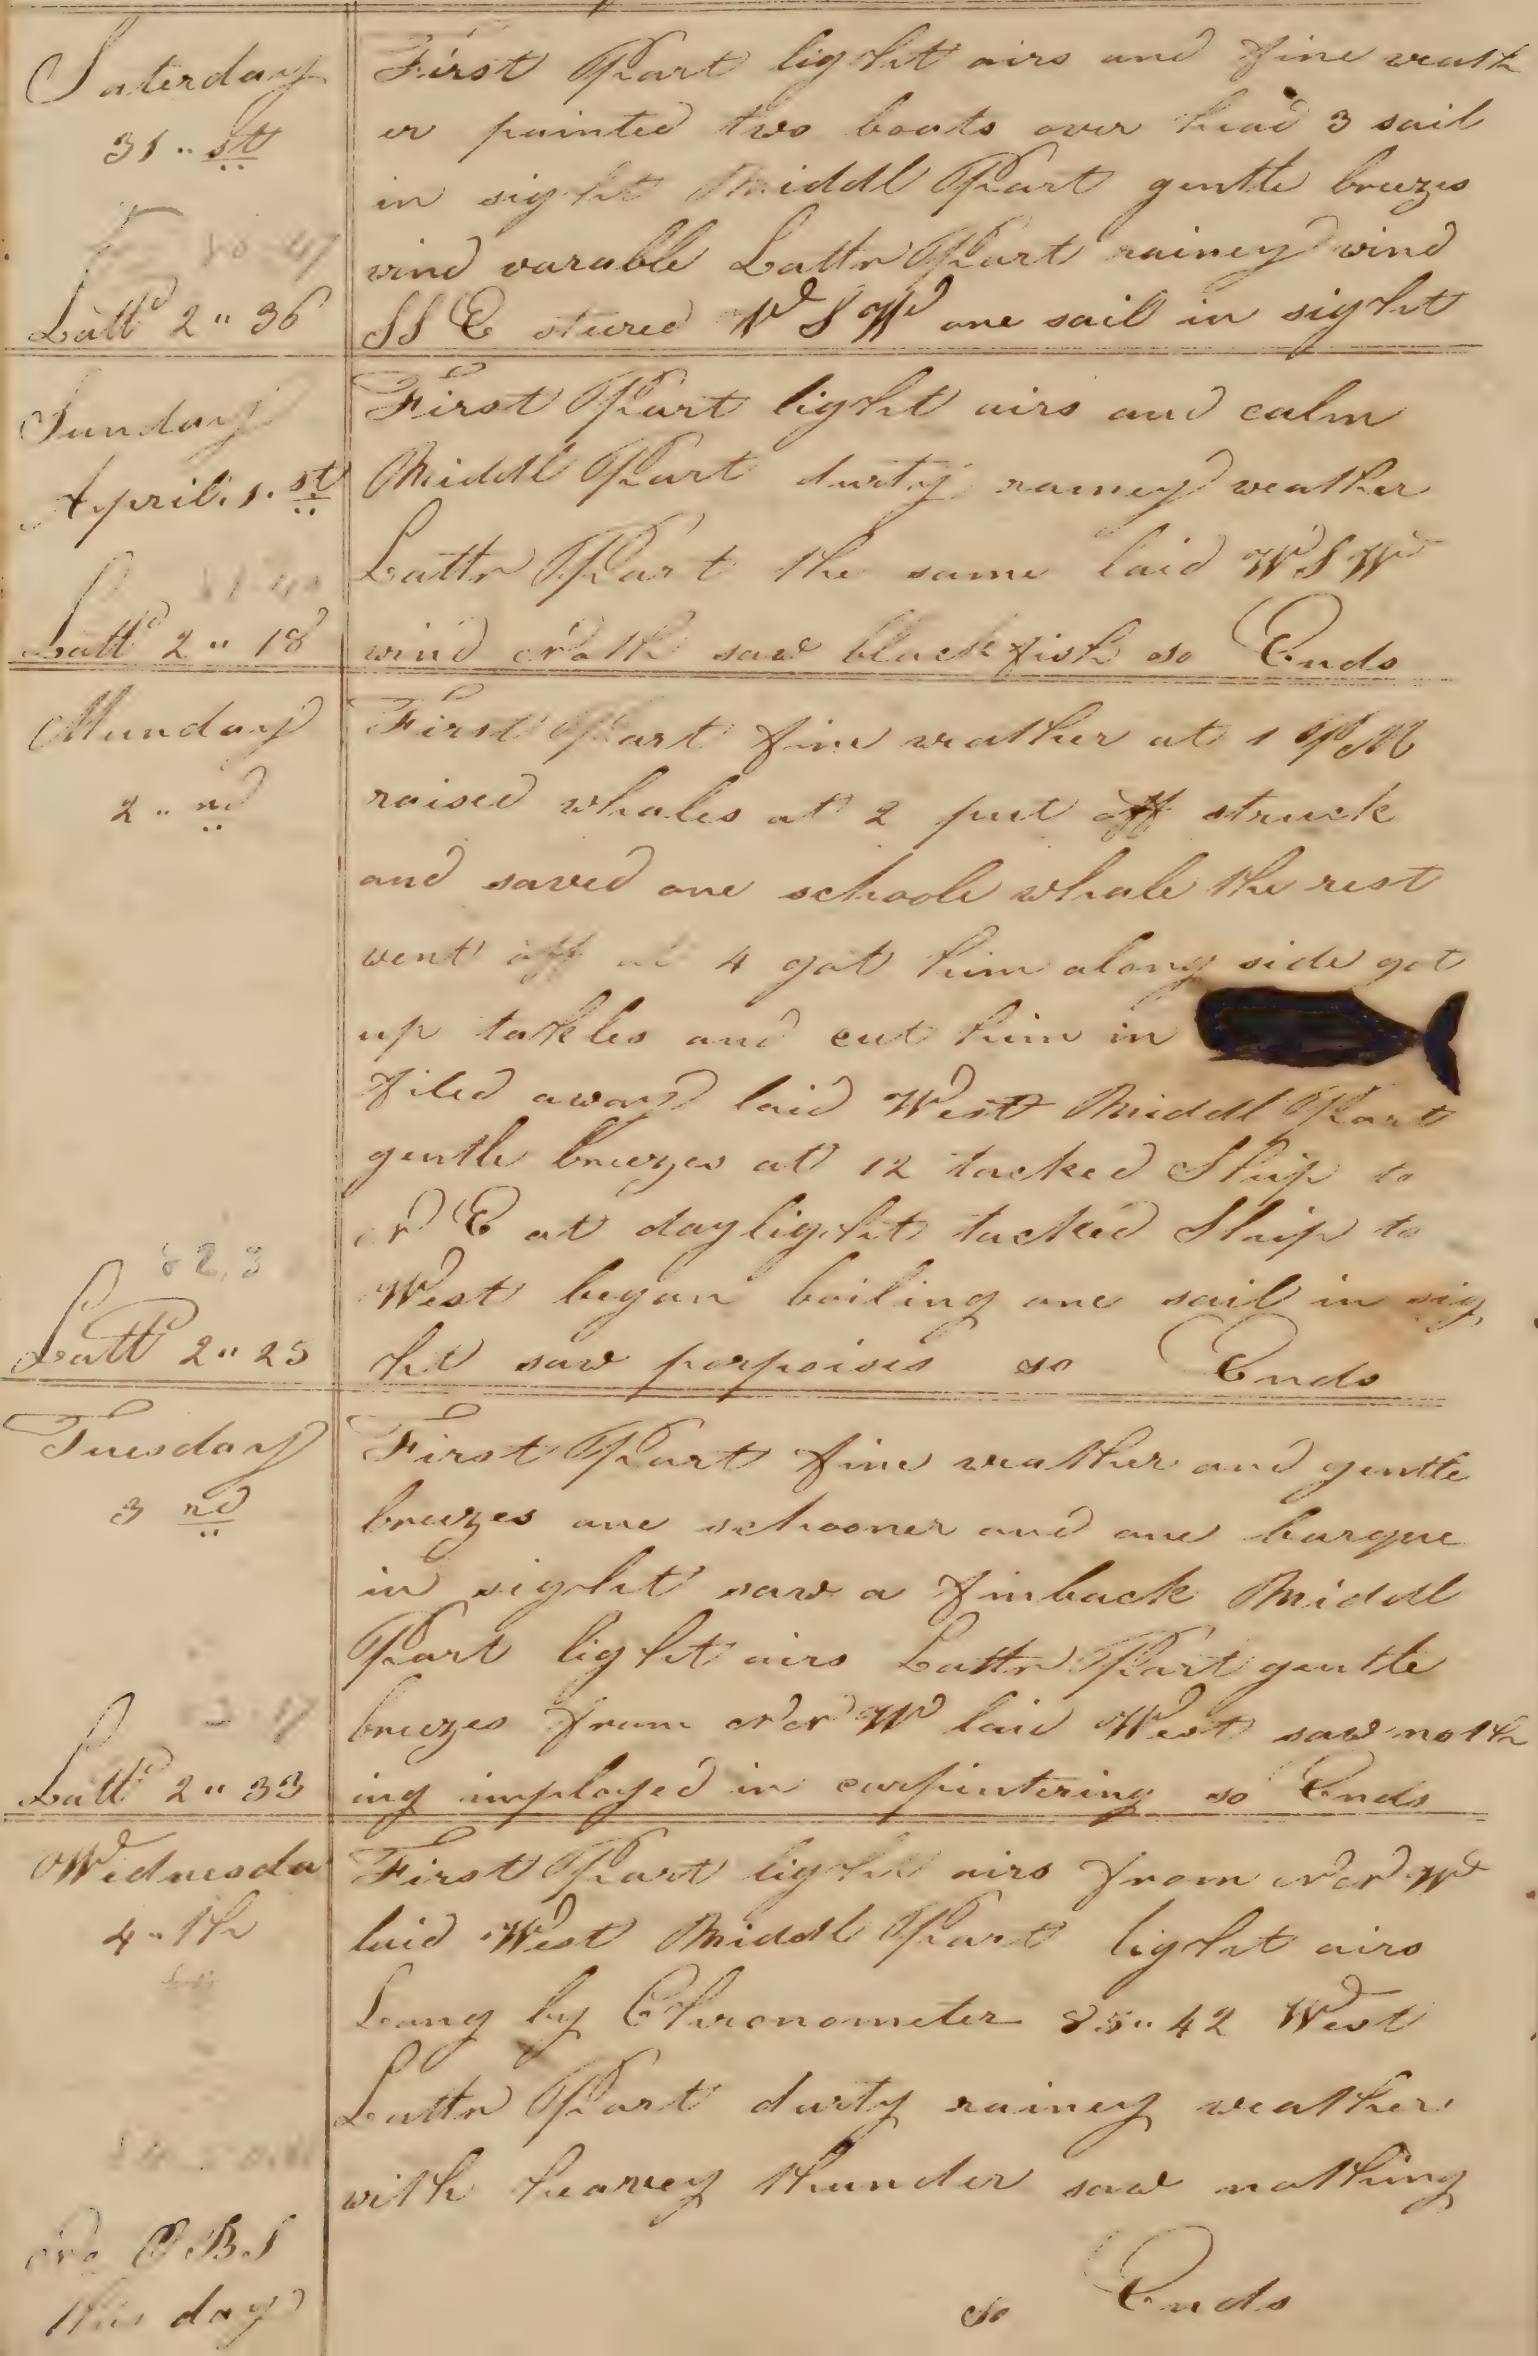 Saterday
31 .. st
80 41
Lattd 2 " 36
First Part light airs and fine weath
er painted two boats over head 3 sail
in sight Middl Part gentle breezes
wind varable Lattr Part rainey wind
SSE steared WSW one sail in sight
Sunday
April. 1. st
Lattd 2 " 18
First Part light airs and calm
Middl Part durty rainey weather
Lattr Part the same laid WSW
wind North saw blackfish so Ends
Munday
2 .. nd
82,3
Lattd 2 " 25
First Part fine weather at 1 PM
raised whales at 2 put off struck
and saved one schoole whale the rest
went off at 4 got him along side got
up takles and cut him in
filed away laid West Middl Part
gentle breezes at 12 tacked Ship to
N E at daylight tacked Ship to
West began boiling one sail in sig
ht saw porpoises so Ends
Tuesday
3 nd
Lattd 2 " 33
First Part fine weather and gentle
breezes one schooner and one barque
in sight saw a finback Middl
Part light airs Lattr Part gentle
breezes from NNW laid West saw noth
ing imployed in carpintering so Ends
Wednesda
4 .. th
No OBS
this day
First Part light airs from NNW
laid West Middl Part light airs
Long by Chronometer 85 " 42 West
Lattr Part durty rainey weather
with heavey thunder saw nothing
so Ends